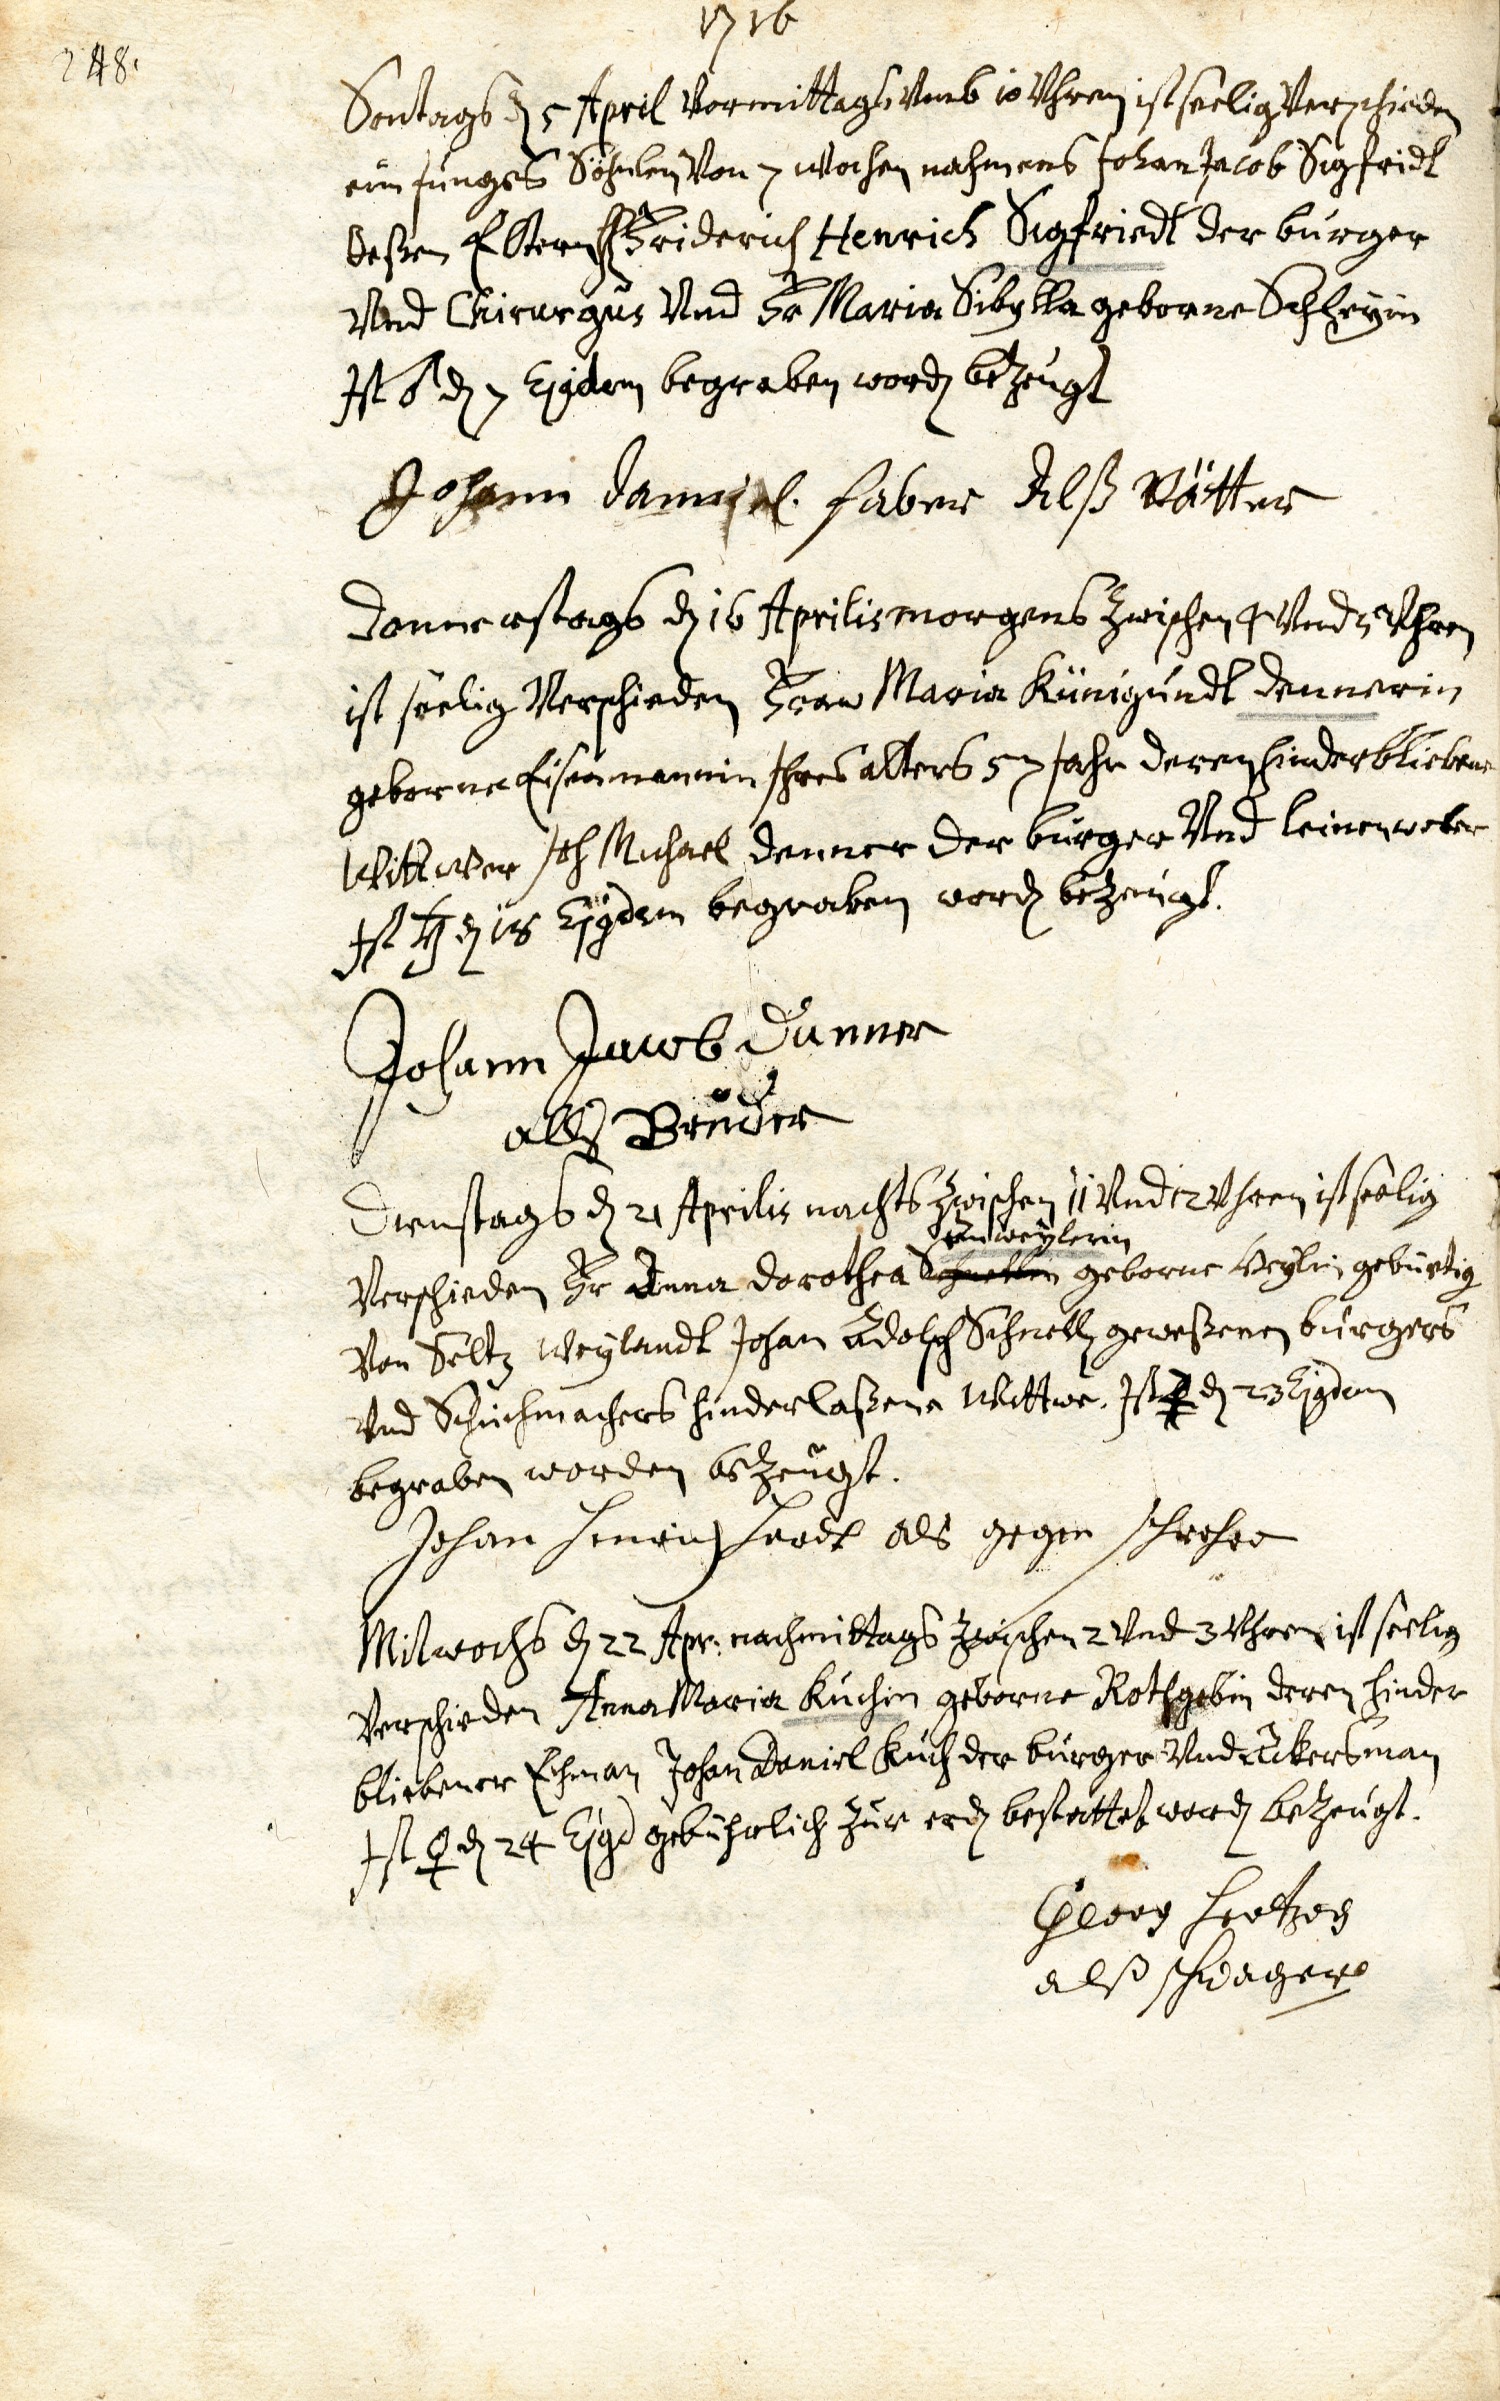 1716
248.
Sontags d 5 April Vormittags Vmb 10 Vhren ist seelig Verschieden
ein junges Söhnlen Von 7 wochen nahmens Johan Jacob Sigfridt
deßen Eltern H Friderich Henrich Sigfriedt der burger
Vnd Chirurgus Vnd Fr Maria Sibylla geborne
Ist ♂ d 7 Ejgdem begraben word bezeugt
Johann Danniel faber Alß Vätter
Donnerstags d 16 Aprilis morgens zwischen 4 Vnd 5 Vhren
ist seelig Verschieden Fraw Maria Künigundt Dennerin
geborne Eisenmannin Ihres alters 57 Jahr deren hinderbliebene
Wittwer Joh Michael Denner der burger Vnd leinenweber
Ist ♄ d 18 Ejgdem begraben word bezeugt.
Johann Jacob Danner
allß Bruder
Dienstags d 21 Aprilis nachts zwischen 11 Vnd 12 Vhren ist seelig
Anweylerin
Verschieden Fr Anna Dorothea Schnellin geborne Veylin gebürtig
Von Seltz Weylandt Johan Adolph Schnell geweßenen burgers
Vnd Schuchmachers hinderlaßene Wittwe. Ist ♃ d 23 Ejgdem
begraben worden bezeugt.
Johan Henrich als gegen schweher
Mitwochs d 22 Apr: nachmittags zwischen 2 Vnd 3 Vhren ist seelig
Verschieden Anna Maria Kuchin geborne Rothgebin deren hinder
bliebener Ehman Johan Daniel Kuch der burger Vnd Ackersman
Ist ♀ d 24 Ejgd gebührlich zur erd bestattet word bezeugt.
Georg Hertzog
alß schwager